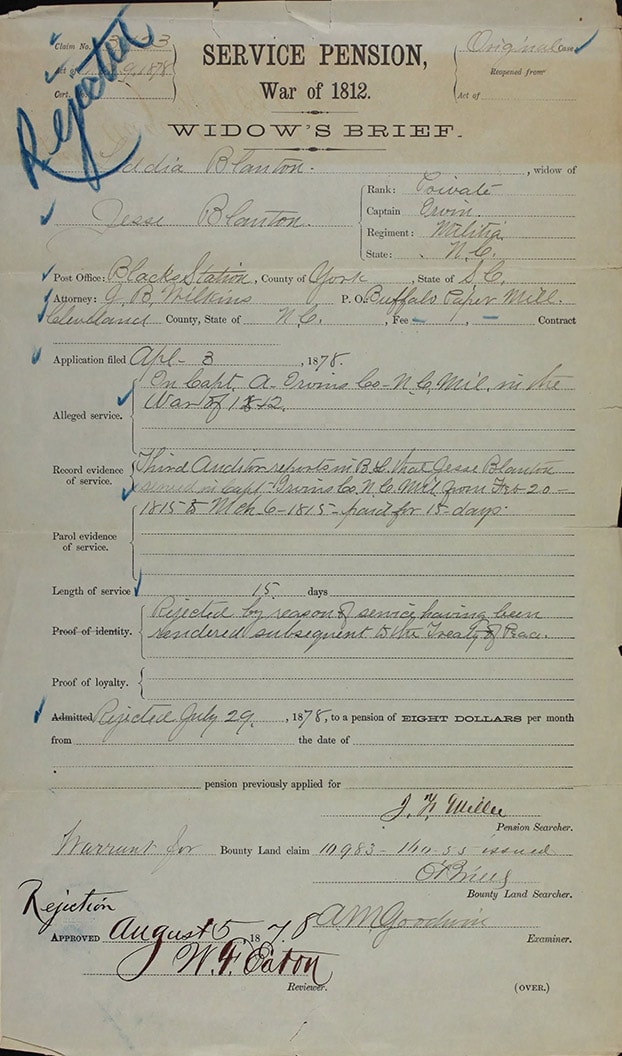 Rejected
Claim No.
Original Case
SERVICE PENSION,
Act of 9, 1878
Reopened from
Cert.
War of 1812.
Act of
WIDOW'S BRIEF.
Blanton. , widow of
Jesse Blanton.
Rank: Private
Captain Ervin.
Regiment: Militia
State: N.C.
Post Office: Blacks Station, County of York, State of S.C.
Attorney: J. B. Wilkins P. O. Buffalo Paper Mill.
Cleveland County, State of N.C. , Fee — , — Contract
Application filed Apl- 3 , 1878.
Alleged service. In Capt. A- Irvins Co- N.C. Mil. in the
War of 1812.
Record evidence of service. Third Auditor reports in B.L. that Jesse Blanton
served in Capt. Irvins Co. N.C. Mil from Feb 20-
1815 to Mch 6-1815- paid for 15- days.
Parol evidence of service.
Length of service 15 days
Proof of identity. Rejected by reason of service having been
rendered subsequent to the Treaty of Peace.
Proof of loyalty.
Admitted Rejected July 29, , 1878, to a pension of EIGHT DOLLARS per month
from the date of
pension previously applied for
J. F. Miller
Pension Searcher.
Warrant for Bounty Land claim 10983- 160-55 issued
Bounty Land Searcher.
Rejection
A M Goodwin
APPROVED August 5 1878
Examiner.
W. F. Eaton
Reviewer.
(OVER.)